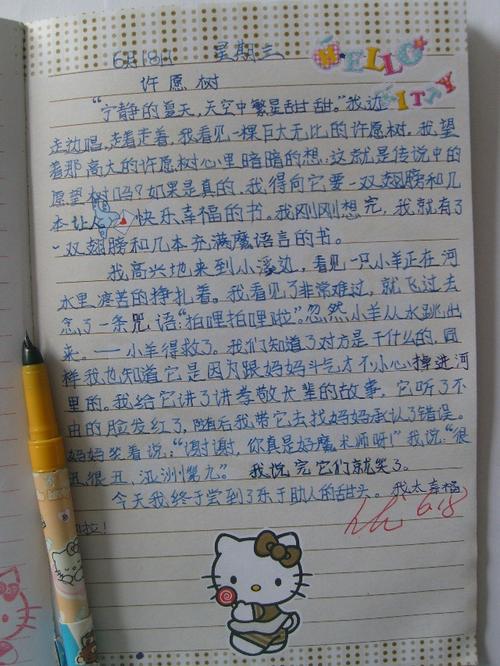 6月18日 星期三
HELLO
许愿树
KITTY
“宁静的夏天,天空中繁星甜甜。”我边
走边唱,走着走着,我看见一棵巨大无比的许愿树,我望
着那高大的许愿树心里暗暗的想:这就是传说中的
愿望树吗?如果是真的,我得向它要一双翅膀和几
本让人快乐幸福的书。我刚刚想完,我就有了
一双翅膀和几本充满魔语言的书。
我高兴地来到小溪边,看见一只小羊正在河
水里痛苦的挣扎着。我看见了非常难过,就飞过去
念了一条咒语:“拍哩拍哩啦”。忽然小羊从水跳出
来。——小羊得救了。我们知道了对方是干什么的,同
样我也知道它是因为跟妈妈斗气才不小心掉进河
里的。我给它讲了讲孝敬长辈的故事,它听了不
由的脸发红了,随后我带它去找妈妈承认了错误。
妈妈笑着说:“谢谢,你真是好魔术师呀!”我说:“很
丑,很丑,亚洲第九。”我说完它们就笑了。
今天我终于尝到了乐于助人的甜头。我太幸福
啦!
6.18